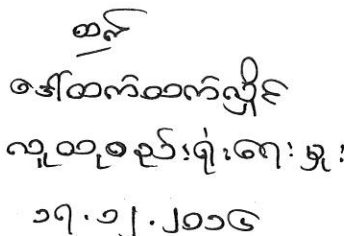 ထင်
ဒေါ်ထက်ထက်လှိုင်
လူထုစည်းရုံးရေးမှူး
၁၅.၁၂.၂၀၁၆